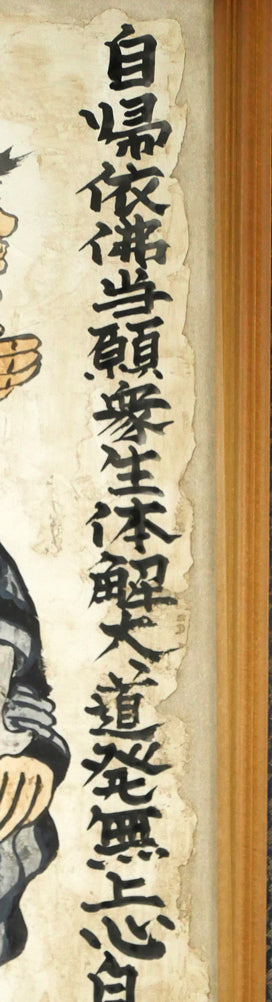 自帰依佛当願衆生体解大道発無上心自